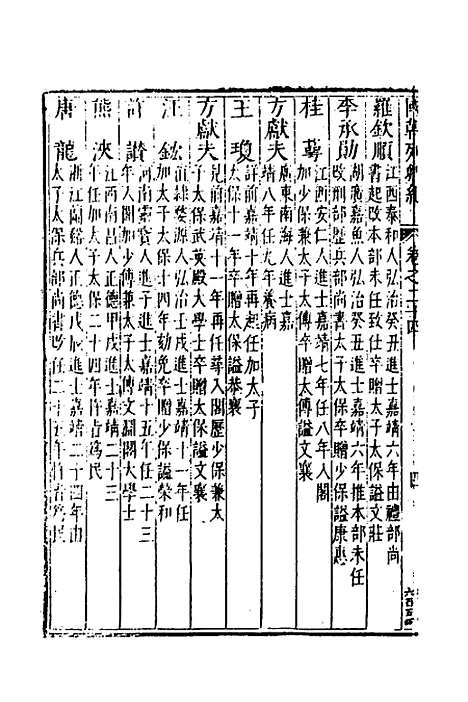 國朝列卿紀
卷之二十四
羅欽順 江西泰和人弘治癸丑進士嘉靖六年由禮部尚
書起改本部未任致仕卒贈太子太保謚文莊
李承勛 湖廣嘉魚人弘治癸丑進士嘉靖六年推本部未任
改刑部歷兵部尚書太子太保卒贈少保謚康惠
桂萼 江西安仁人進士嘉靖七年任八年入閣
加少保兼太子太傅卒贈太傅謚文襄
方獻夫 廣東南海人進士嘉
靖八年任九年養病
王瓊 詳前嘉靖十年再起任加太子
太保十一年卒贈太保謚恭襄
方獻夫 見前嘉靖十一年再任尋入閣歷少保兼太
子太保武英殿大學士卒贈太保謚文襄
汪鋐 直隸婺源人弘治壬戌進士嘉靖十一年任
加太子太保十四年劾免卒贈少保謚榮和
許讚 河南靈寶人進士嘉靖十五年任二十三
年入閣加少傅兼太子太傅文淵閣大學士
熊浹 江西南昌人正德甲戌進士嘉靖二十三
年任加太子太保二十四年
為民
唐龍 浙江蘭谿人正德戊辰進士嘉靖二十四年由
太子太保兵部尚書改任二十五年
為民